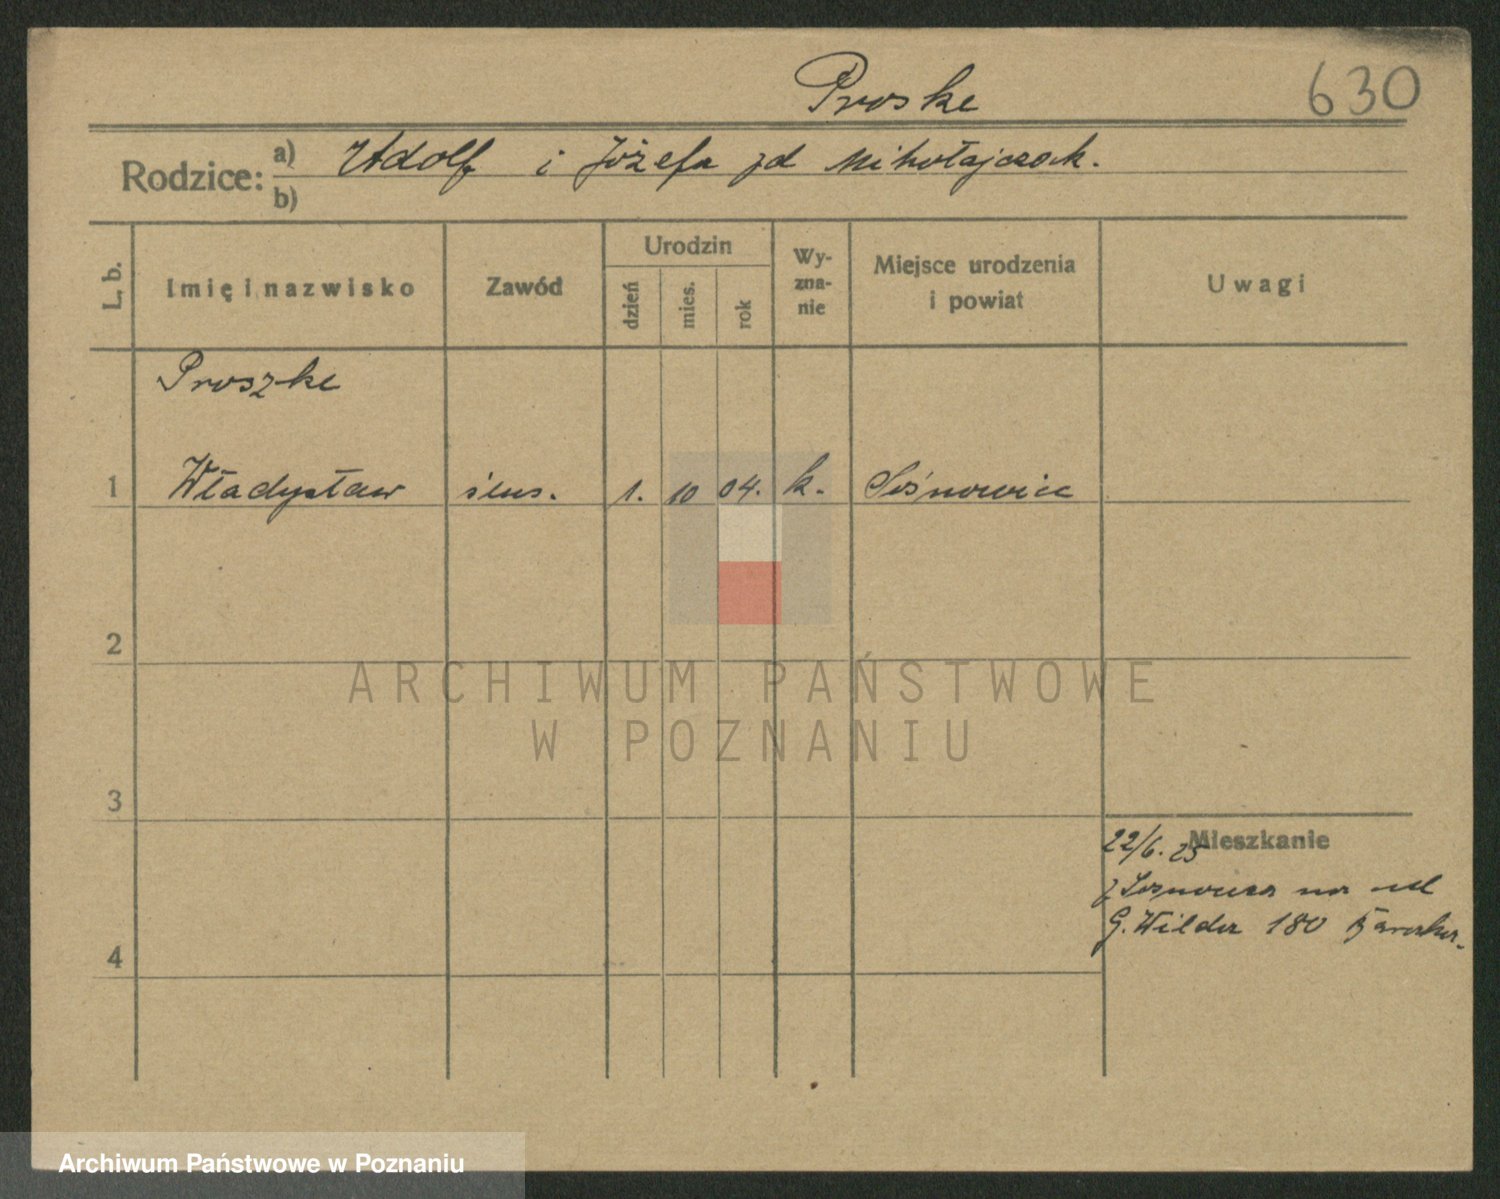 Proske
630
Rodzice: a) Adolf i Józefa zd Mikołajczak.
b)
L. b.
Imię i nazwisko
Zawód
Urodzin
dzień
mies.
rok
Wy-
zna-
nie
Miejsce urodzenia
i powiat
Uwagi
Proszke
1 Władysław ślus. 1. 10 04. k. Sośnowice
2
3
4
Mieszkanie
22/6. 25
z Sosnowca na ul
G. Wilda 180
ARCHIWUM PAŃSTWOWE
W POZNANIU
Archiwum Państwowe w Poznaniu